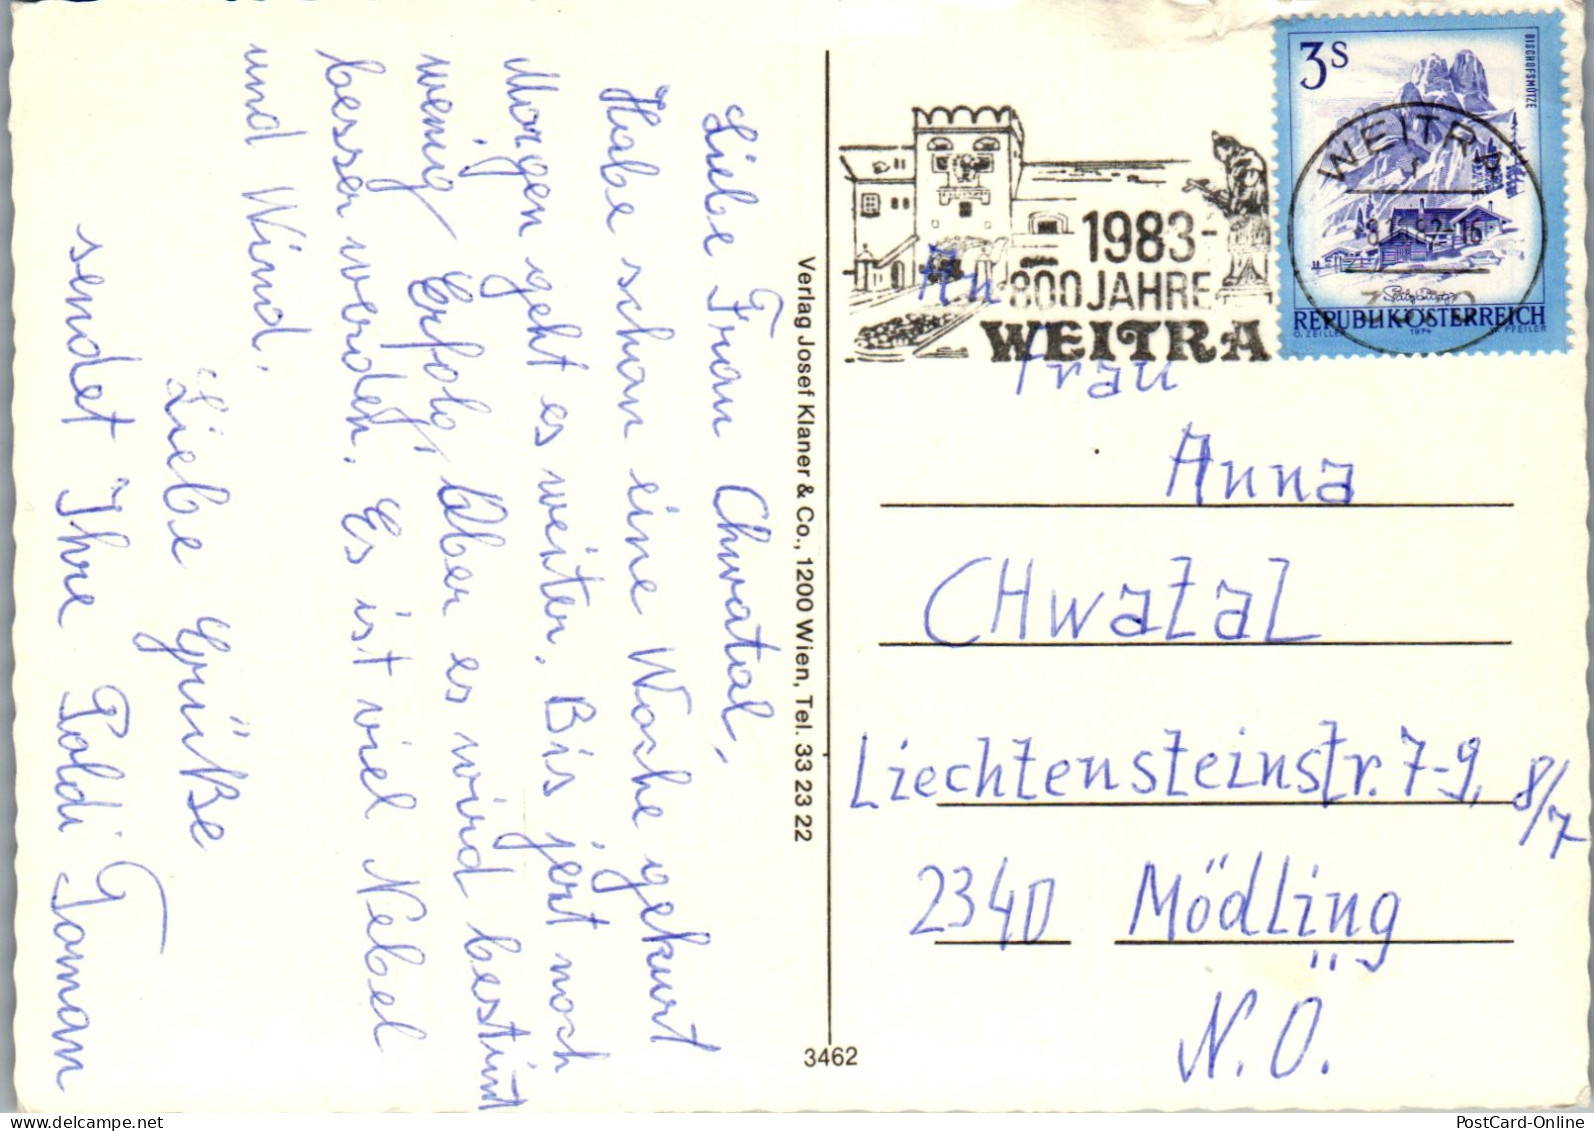 Liebe Frau Chwatal,
Habe schon eine Woche gekurt
Morgen geht es weiter. Bis jetzt noch
wenig Erfolg, Aber es wird bestimt
besser werden. Es ist viel Nebel
und Wind.
Liebe Grüße
sendet Ihre Poldi Toman
Verlag Josef Klaner & Co., 1200 Wien, Tel. 33 23 22
3462
1983-
800 JAHRE
WEITRA
3S
BISCHOFSMÜTZE
WEITRA
REPUBLIK ÖSTERREICH
O. ZEILLER 1974 PFEILER
An
Frau
Anna
CHwatal
Liechtensteinstr. 7-9, 8/7
2340 Mödling
N.Ö.
PostCard-Online